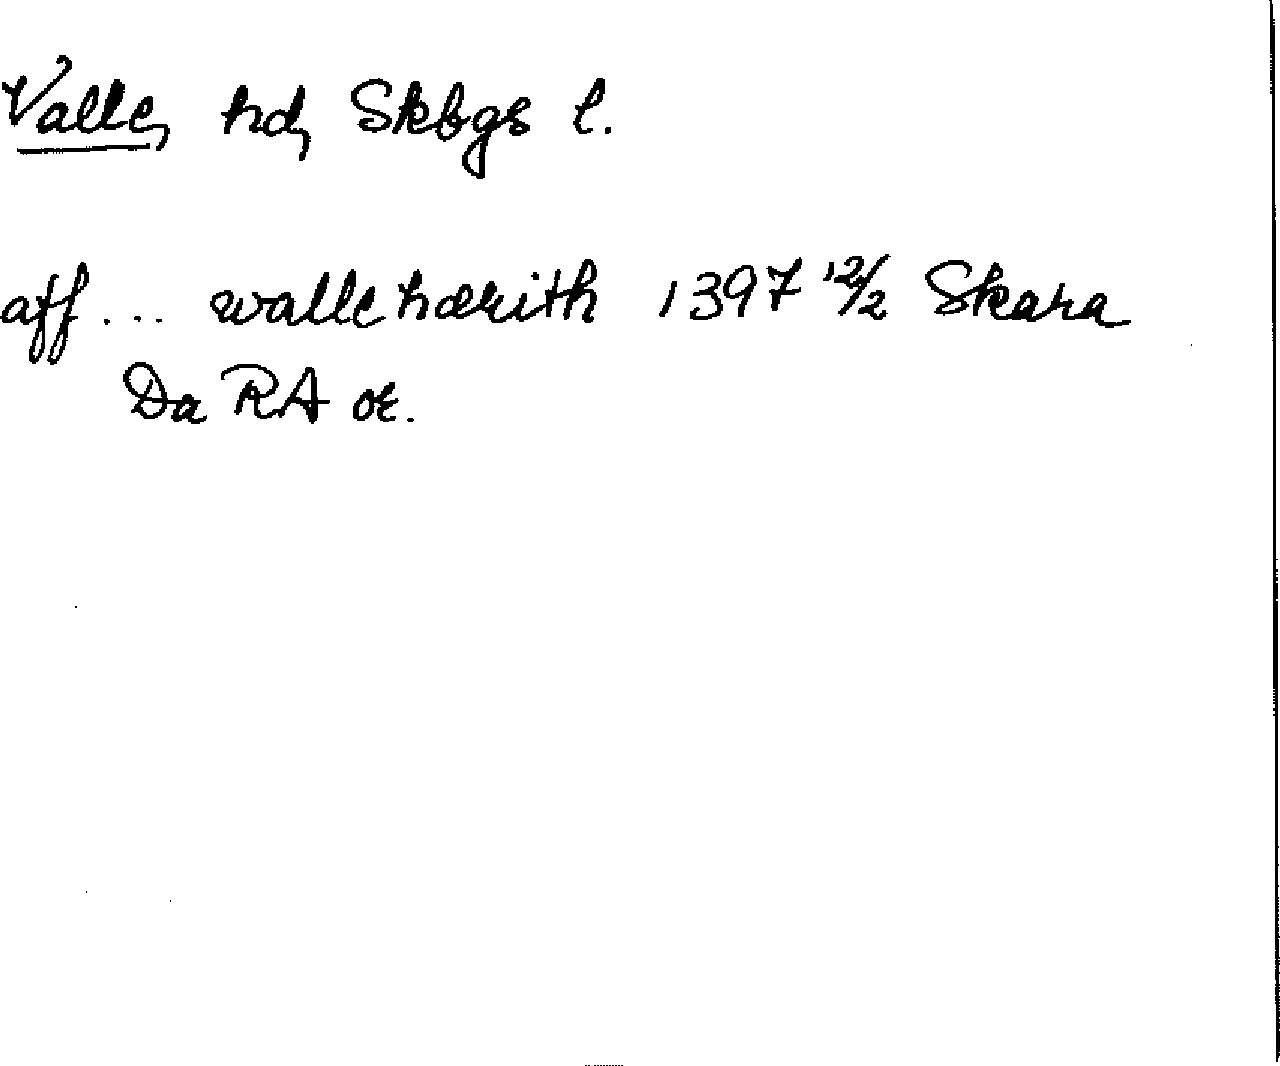 Valle, hd, Skbgs l.
aff ... walle hærith 1397 12/2 Skara
Da RA or.